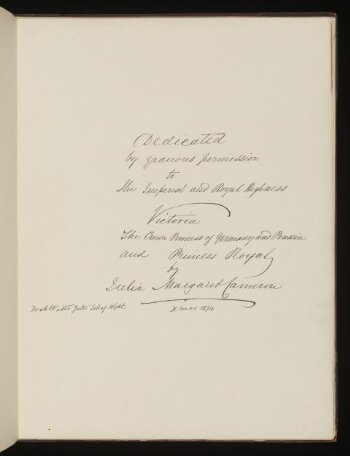 Dedicated
by gracious permission
to
Her Imperial and Royal Highness
Victoria
The Crown Princess of Germany and Prussia
and Princess Royal
by
Julia Margaret Cameron
Freshwater Isle of Wight.
Xmas 1874